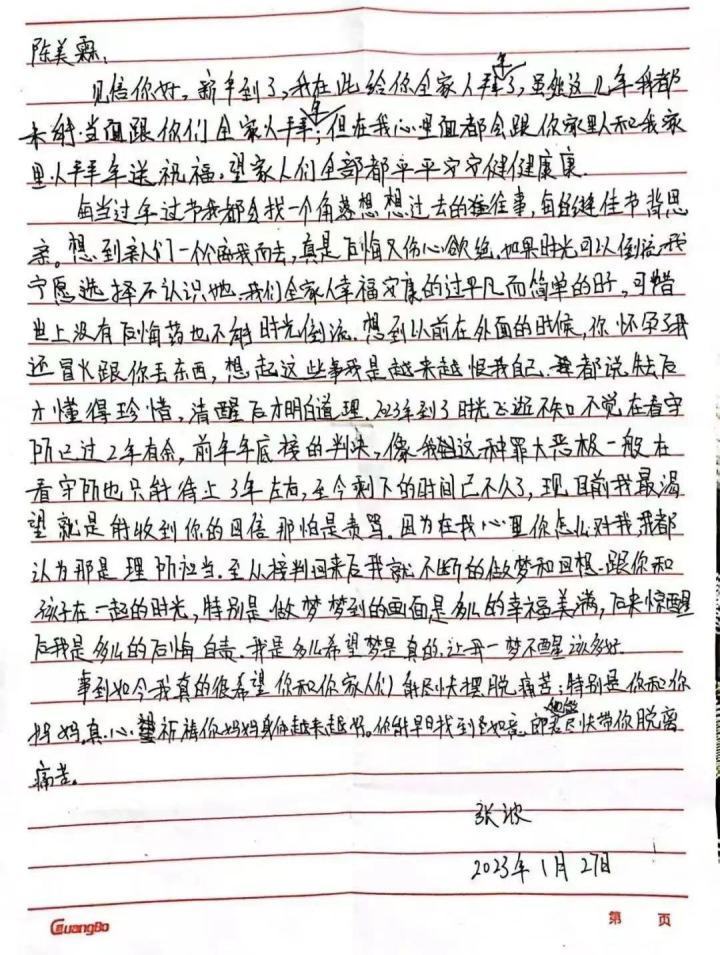 陈美霖:
见信你好,新年到了,我在此给你全家人拜年了,虽然这几年我都
未能当面跟你们全家人拜年;但在我心里面都会跟你家里人和我家
里人拜年送祝福,望家人们全部都平平安安健健康康.
每当过年过节我都会找一个角落想想过去的往事,每逢佳节背思
亲。想到亲人们一个个离我而去,真是后悔又伤心欲绝.如果时光可以倒流我
宁愿选择不认识她.我们全家人幸福安康的过平凡而简单的日子,可惜
世上没有后悔药也不能时光倒流.想到以前在外面的时候,你怀孕了我
还冒火跟你丢东西,想起这些事我是越来越恨我自己.都说失去后
才懂得珍惜,清醒后才明白道理,2023年到了时光飞逝不知不觉在看守
所已过2年有余,前年年底接的判决,像我这种罪大恶极一般在
看守所也只能待上3年左右,至今剩下的时间已不久了,现目前我最渴
望就是能收到你的回信那怕是责骂.因为在我心里你怎么对我,我都
认为那是理所担当.至从接判回来后我就不断的做梦和回想.跟你和
孩子在一起的时光,特别是做梦梦到的画面是多么的幸福美满,后来惊醒
后我是多么的后悔自责.我是多么希望梦是真的,让我一梦不醒该多好.
事到如今我真的很希望你和你家人们能尽快摆脱痛苦;特别是你和你
妈妈.真心望祈祷你妈妈身体越来越好。你能早日找到如意郎君尽快带你脱离
痛苦。
张波
2023年1月27日
GuangBo
第 页